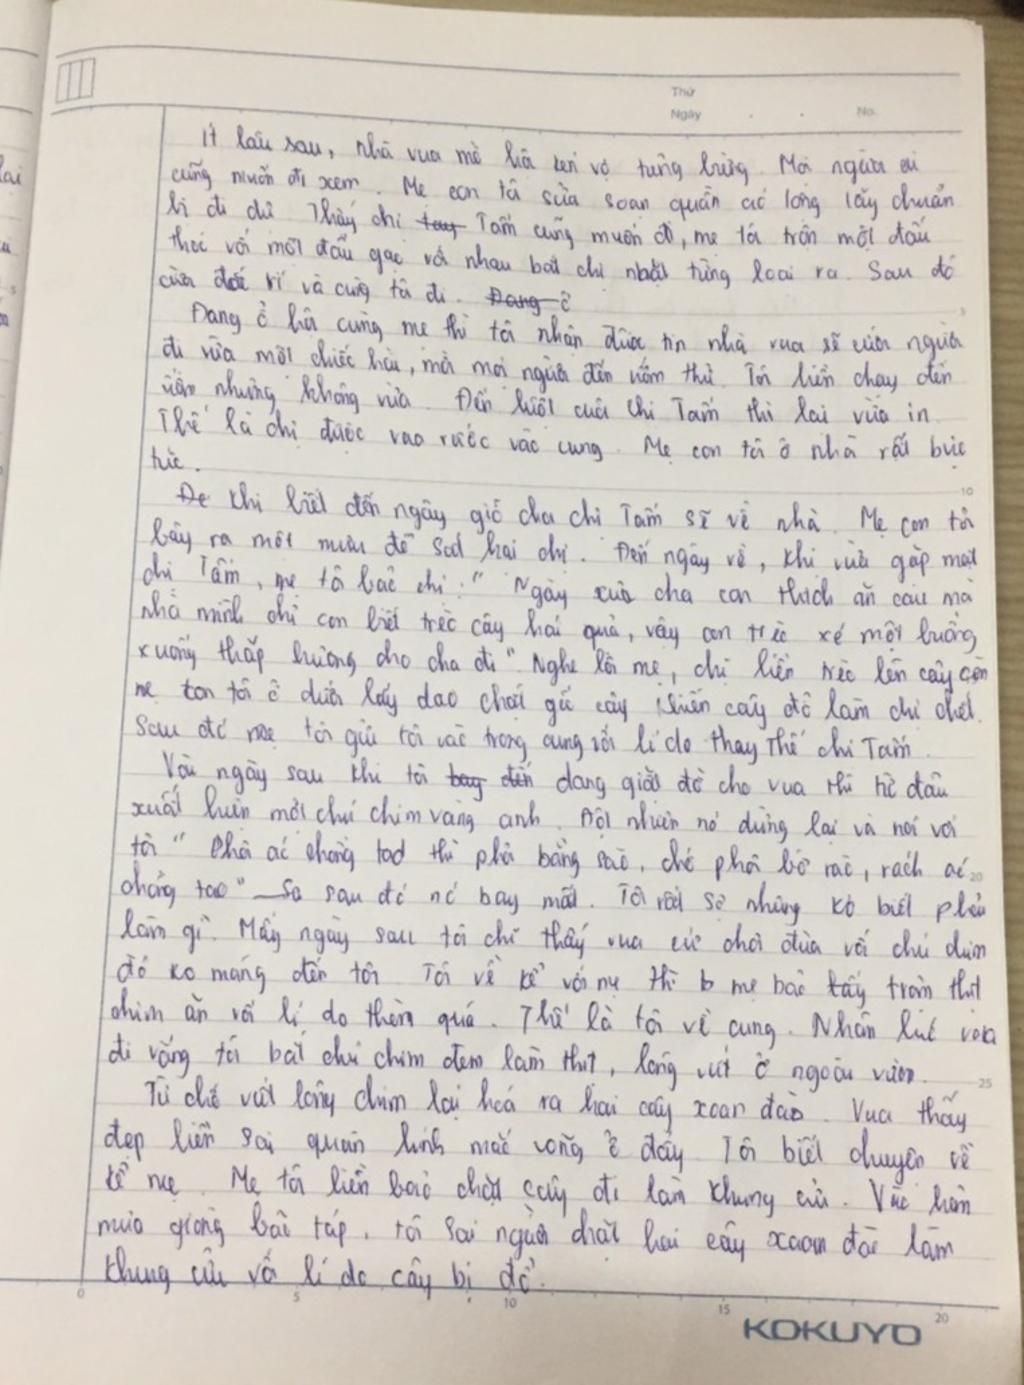 Thứ
Ngày . . No.
Ít lâu sau, nhà vua mở hội kén vợ tưng bừng. Mọi người ai
cũng muốn đi xem. Mẹ con tôi sửa soạn quần áo lộng lẫy chuẩn
bị đi dự. Thấy chị tay Tấm cũng muốn đi, mẹ tôi trộn một đấu
thóc với một đấu gạo với nhau bắt chị nhặt từng loại ra. Sau đó
cùng tôi đi. Đang ở
Đang ở hội cùng mẹ thì tôi nhận được tin nhà vua sẽ cưới người
đi vừa một chiếc hài, mời mọi người đến ướm thử. Tôi liền chạy đến
nhưng không vừa. Đến lượt của chị Tấm thì lại vừa in.
Thế là chị được vào rước vào cung. Mẹ con tôi ở nhà rất bực
tức.
Để khi biết đến ngày giỗ cha chị Tấm sẽ về nhà. Mẹ con tôi
bày ra một mưu để hại chị. Đến ngày về, khi vừa gặp mặt
chị Tấm, mẹ tôi bảo chị: " Ngày xưa cha con thích ăn cau mà
nhà mình chỉ con biết trèo cây hái quả, vậy con trèo xé một buồng
xuống thắp hương cho cha đi" Nghe lời mẹ, chị liền trèo lên cây còn
mẹ con tôi ở dưới lấy dao chặt gốc cây khiến cây đổ làm chị chết.
Sau đó mẹ tôi gửi tôi vào trong cung với lí do thay thế chị Tấm.
Vài ngày sau khi tôi đến đang giặt đồ cho vua thì từ đâu
xuất hiện một chú chim vàng anh. Đột nhiên nó dừng lại và nói với
tôi " Phơi áo chồng tao thì phơi bằng sào, chớ phơi bờ rào, rách áo
chồng tao" So sau đó nó bay mất. Tôi rất sợ nhưng ko biết phải
làm gì. Mấy ngày sau tôi chỉ thấy vua cứ chơi đùa với chú chim
đó ko màng đến tôi. Tôi về kể với mẹ thì b mẹ bảo lấy trộm thịt
chim ăn với lí do thèm quá. Thế là tôi về cung. Nhân lúc vua
đi vắng tôi bắt chú chim đem làm thịt, lông vứt ở ngoài vườn.
Từ chỗ vứt lông chim lại hoá ra hai cây xoan đào. Vua thấy
đẹp liền sai quân lính mắc võng ở đấy. Tôi biết chuyện về
kể mẹ. Mẹ tôi liền bảo chặt cây đi làm khung cửi. Vào hôm
mưa giông bão táp, tôi sai người chặt hai cây xoan đào làm
khung cửi với lí do cây bị đổ.
5
10
20
25
0 5 10 15 20
KOKUYO